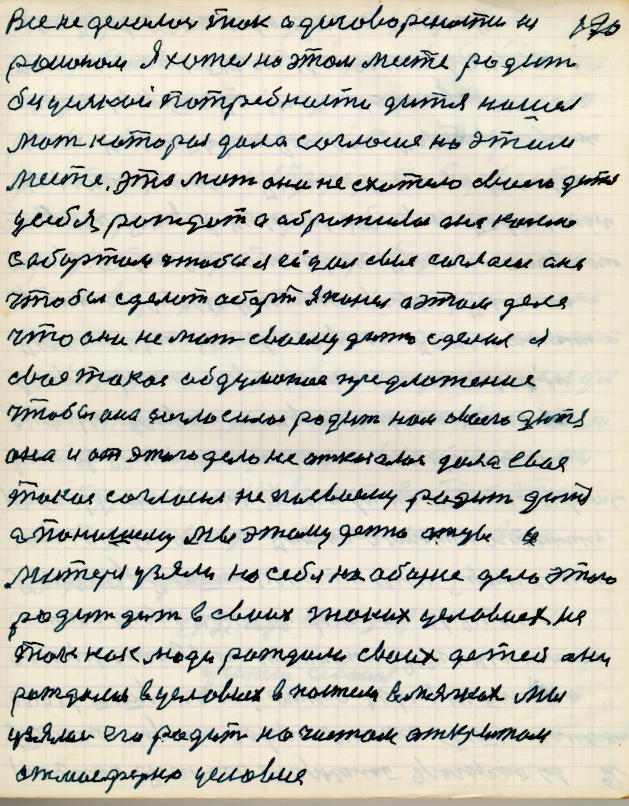 Все не делалося так а договорености и 170
роиоком Я хотел на этом месте родит
бы уелкой потребности дитя нашел
мат которая дала согласие на этим
месте. Это мат она не схотело своего дитя
у себя, рождат а обротилас ана ко мне
с абортом чтобы я ей дал свое согласи ана
чтобы сделат аборт Я понел о этом деле
что они не мат своему дитю сделал я
свое такое обдуманое предложение
чтобы она согласилас родит нам своего дитя
она и от этого дело не отказалас дала свое
такое согласия не по своему родит дитя
а по нашему мы этому дитю отцу и
матери узяли на себя на обание дело этого
родит дитя в своих таких условиях не
так как люди рождали своих детей они
рождалис в условиях в постели в мячках мы
узялис его родит на чистом открытом
атмосферно условие